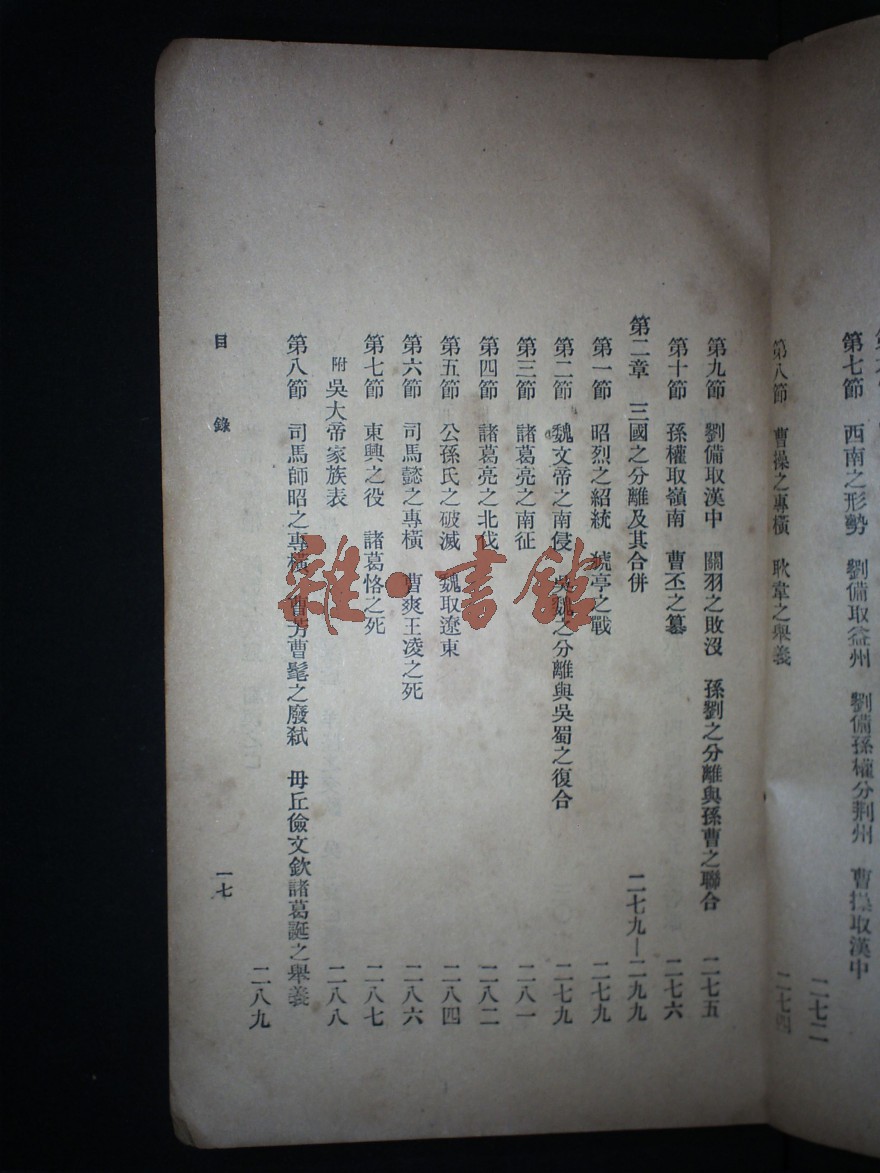 第七節　西南之形勢　劉備取益州　劉備孫權分荆州　曹操取漢中　二七二
第八節　曹操之專橫　耿韋之舉義　二七四
第九節　劉備取漢中　關羽之敗沒　孫劉之分離與孫曹之聯合　二七五
第十節　孫權取嶺南　曹丕之篡　二七六
第二章　三國之分離及其合併　二七九—二九九
第一節　昭烈之紹統　猇亭之戰　二七九
第二節　魏文帝之南侵　吳魏之分離與吳蜀之復合　二七九
第三節　諸葛亮之南征　二八一
第四節　諸葛亮之北伐　二八二
第五節　公孫氏之破滅　魏取遼東　二八四
第六節　司馬懿之專橫　曹爽王凌之死　二八六
第七節　東興之役　諸葛恪之死　二八七
附　吳大帝家族表　二八八
第八節　司馬師昭之專橫　曹芳曹髦之廢弑　毋丘儉文欽諸葛誕之舉義
二八九
目錄　一七
雜·書館